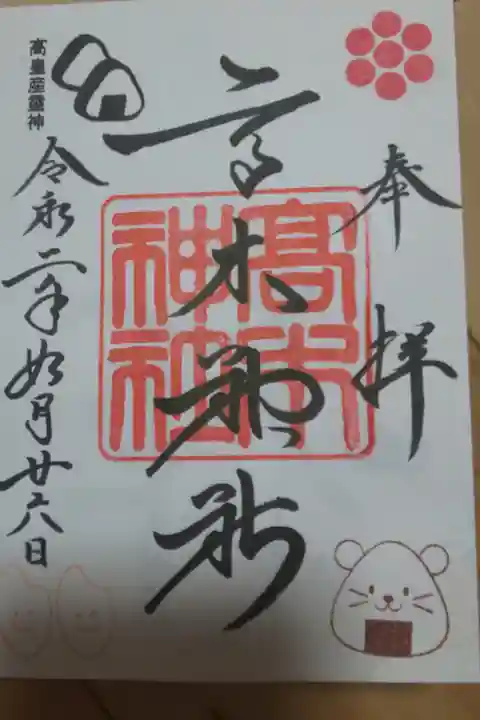 奉拝
高木神社
高木
神社
高皇産靈神
令和二年如月廿六日